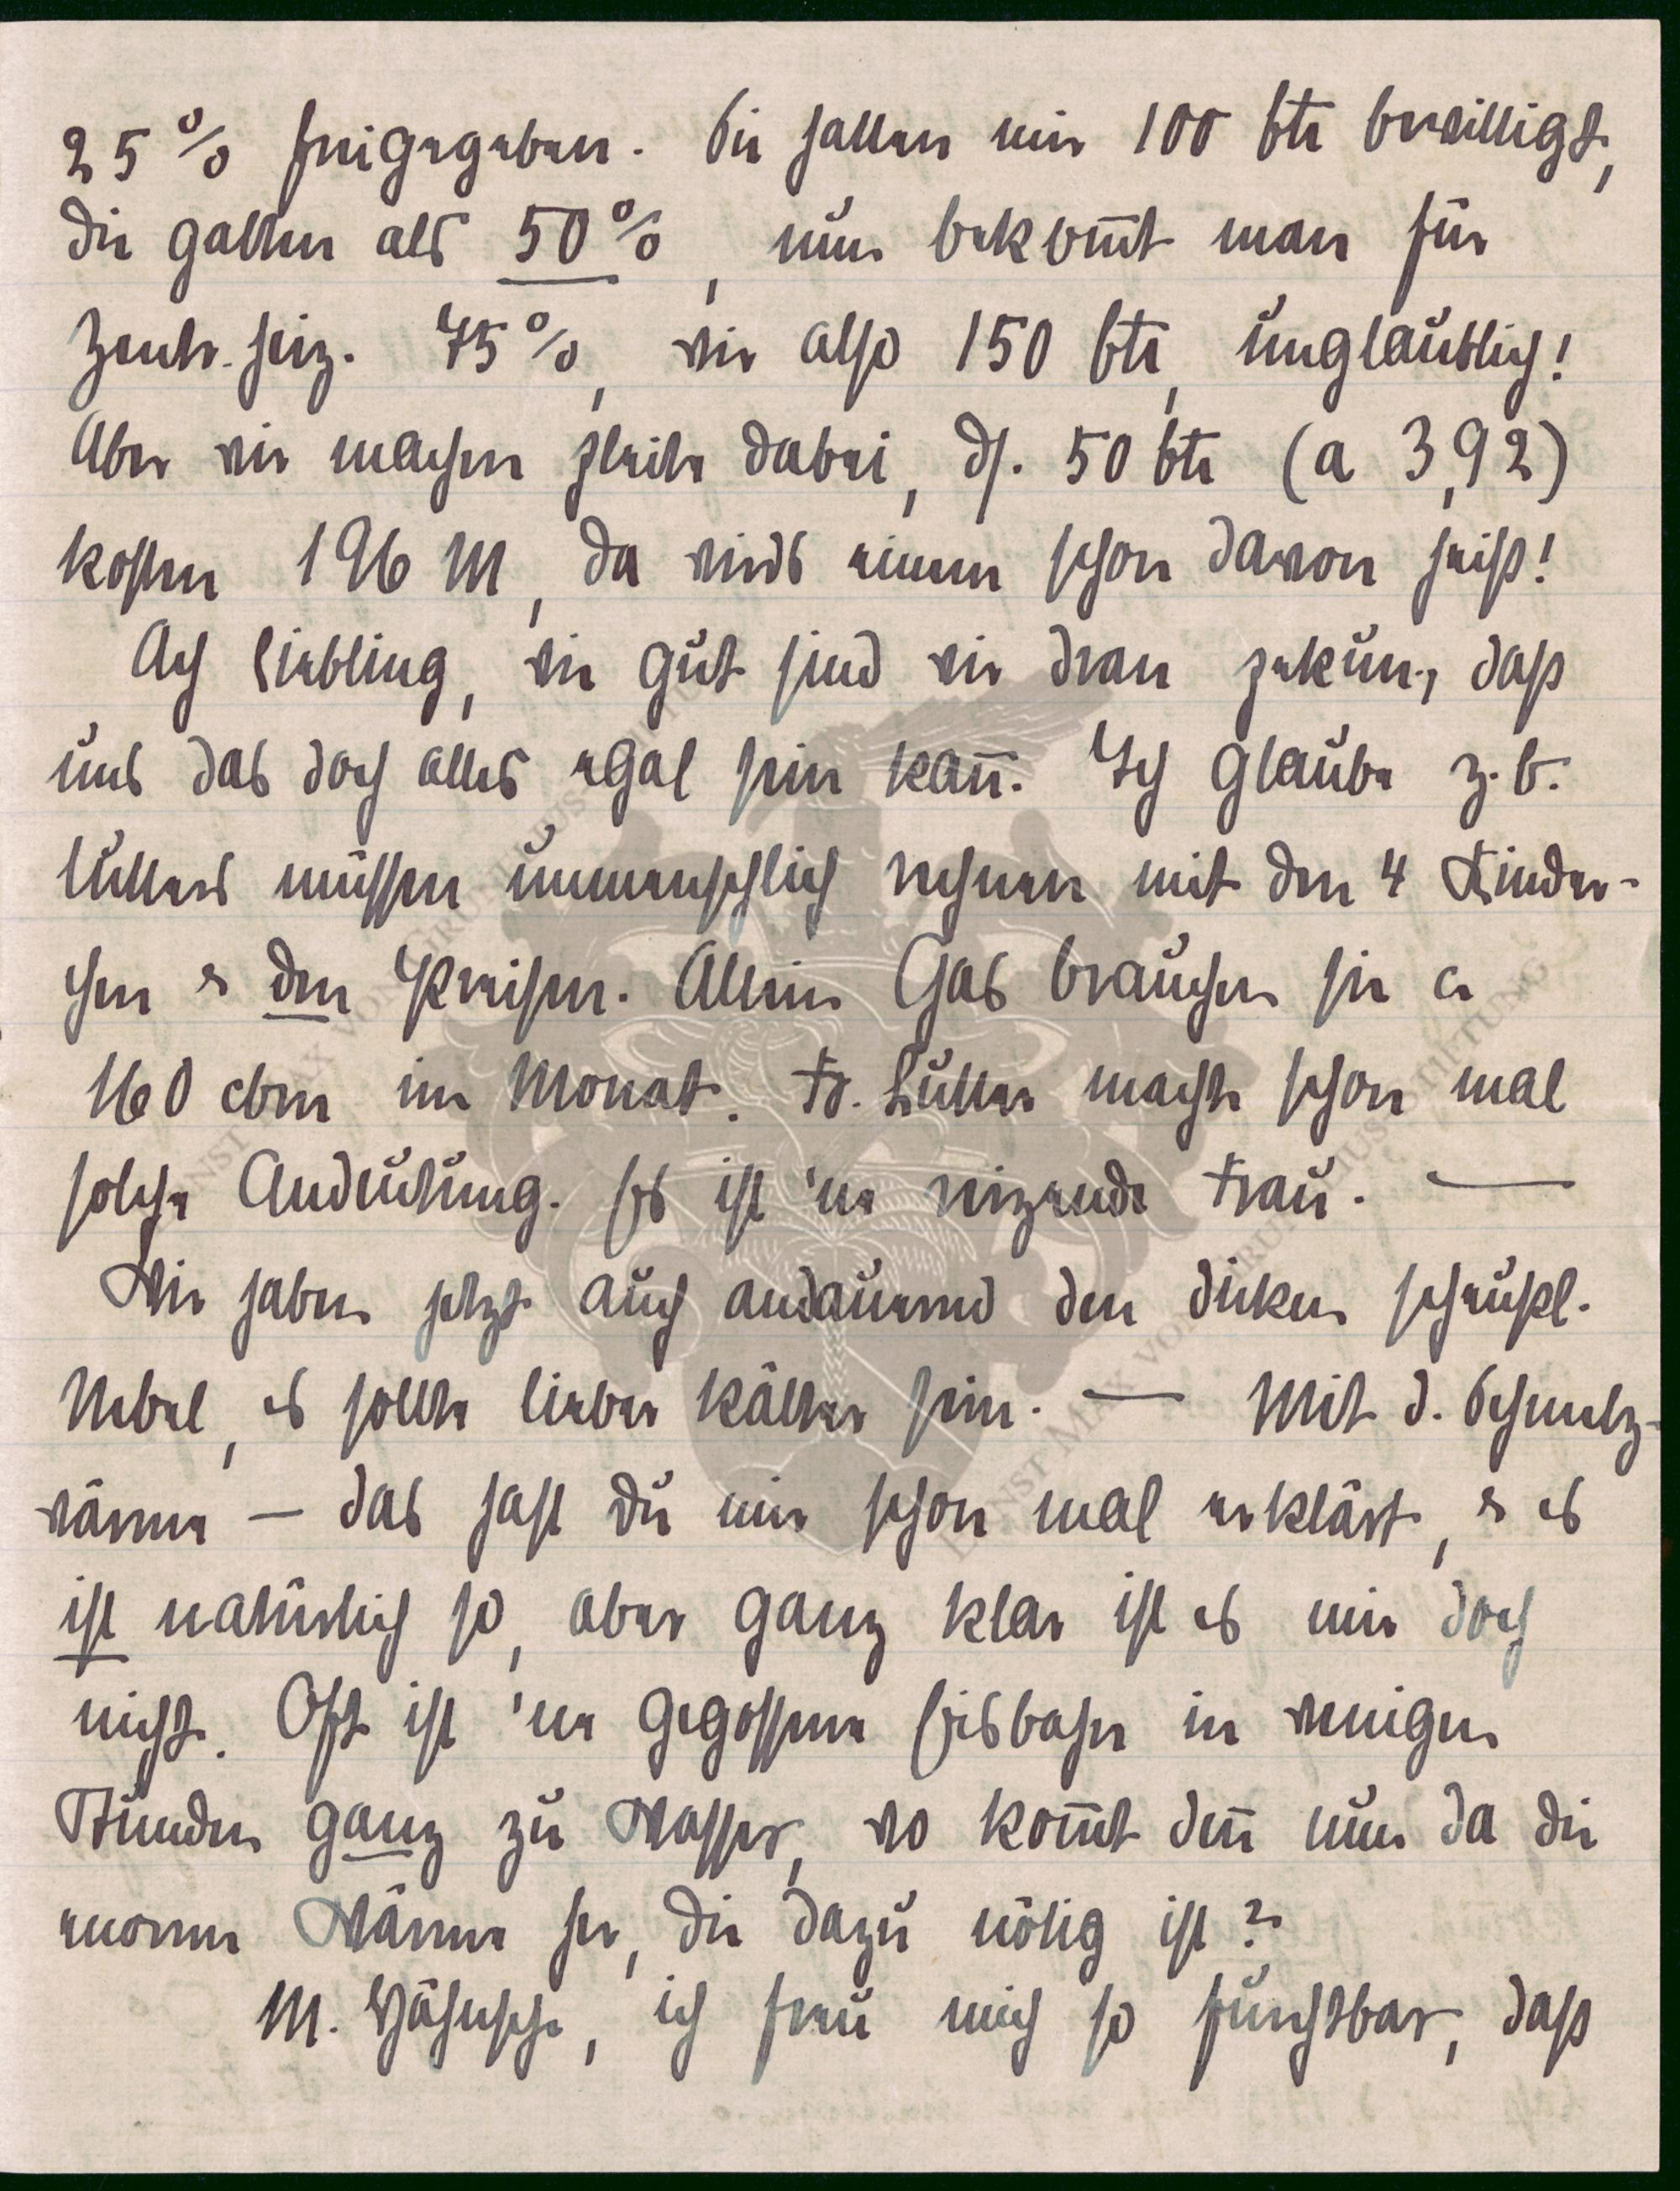 25% freigegeben. Sie hatten mir 100 Ctr bewilligt,
die galten als 50%, nun bekom̅t man für
Zentr. heiz. 75%, wir also 150 Ctr, unglaublich!
Aber wir machen pleite dabei, dh. 50 Ctr (a 3,92)
kosten 196 M, da wirds einem schon davon heiß!
Ach Liebling, wie gut sind wir dran pekun., daß
uns das doch alles egal sein kan̅. Ich glaube z. B.
Lüllers müssen unmenschlich rechnen mit den 4 Kinder-
chen & den Preisen. Allein Gas brauchen sie ca
160 cbm im Monat. Fr. Lüller machte schon mal
solche Andeutung. Es ist 'ne reizende Frau. —
Wir haben jetzt auch andauernd den dicken scheußl.
Nebel, es sollte lieber kälter sein. — Mit d. Schmelz-
wärme – das hast Du mir schon mal erklärt, & es
ist natürlich so, aber ganz klar ist es mir doch
nicht. Oft ist 'ne gegossene Eisbahn in wenigen
Stunden ganz zu Wasser, wo kom̅t den̅ nun da die
enorme Wärme her, die dazu nötig ist?
M. Hähnsche, ich freu mich so furchtbar, daß
ERNST MAX VON GRUNELIUS-STIFTUNG